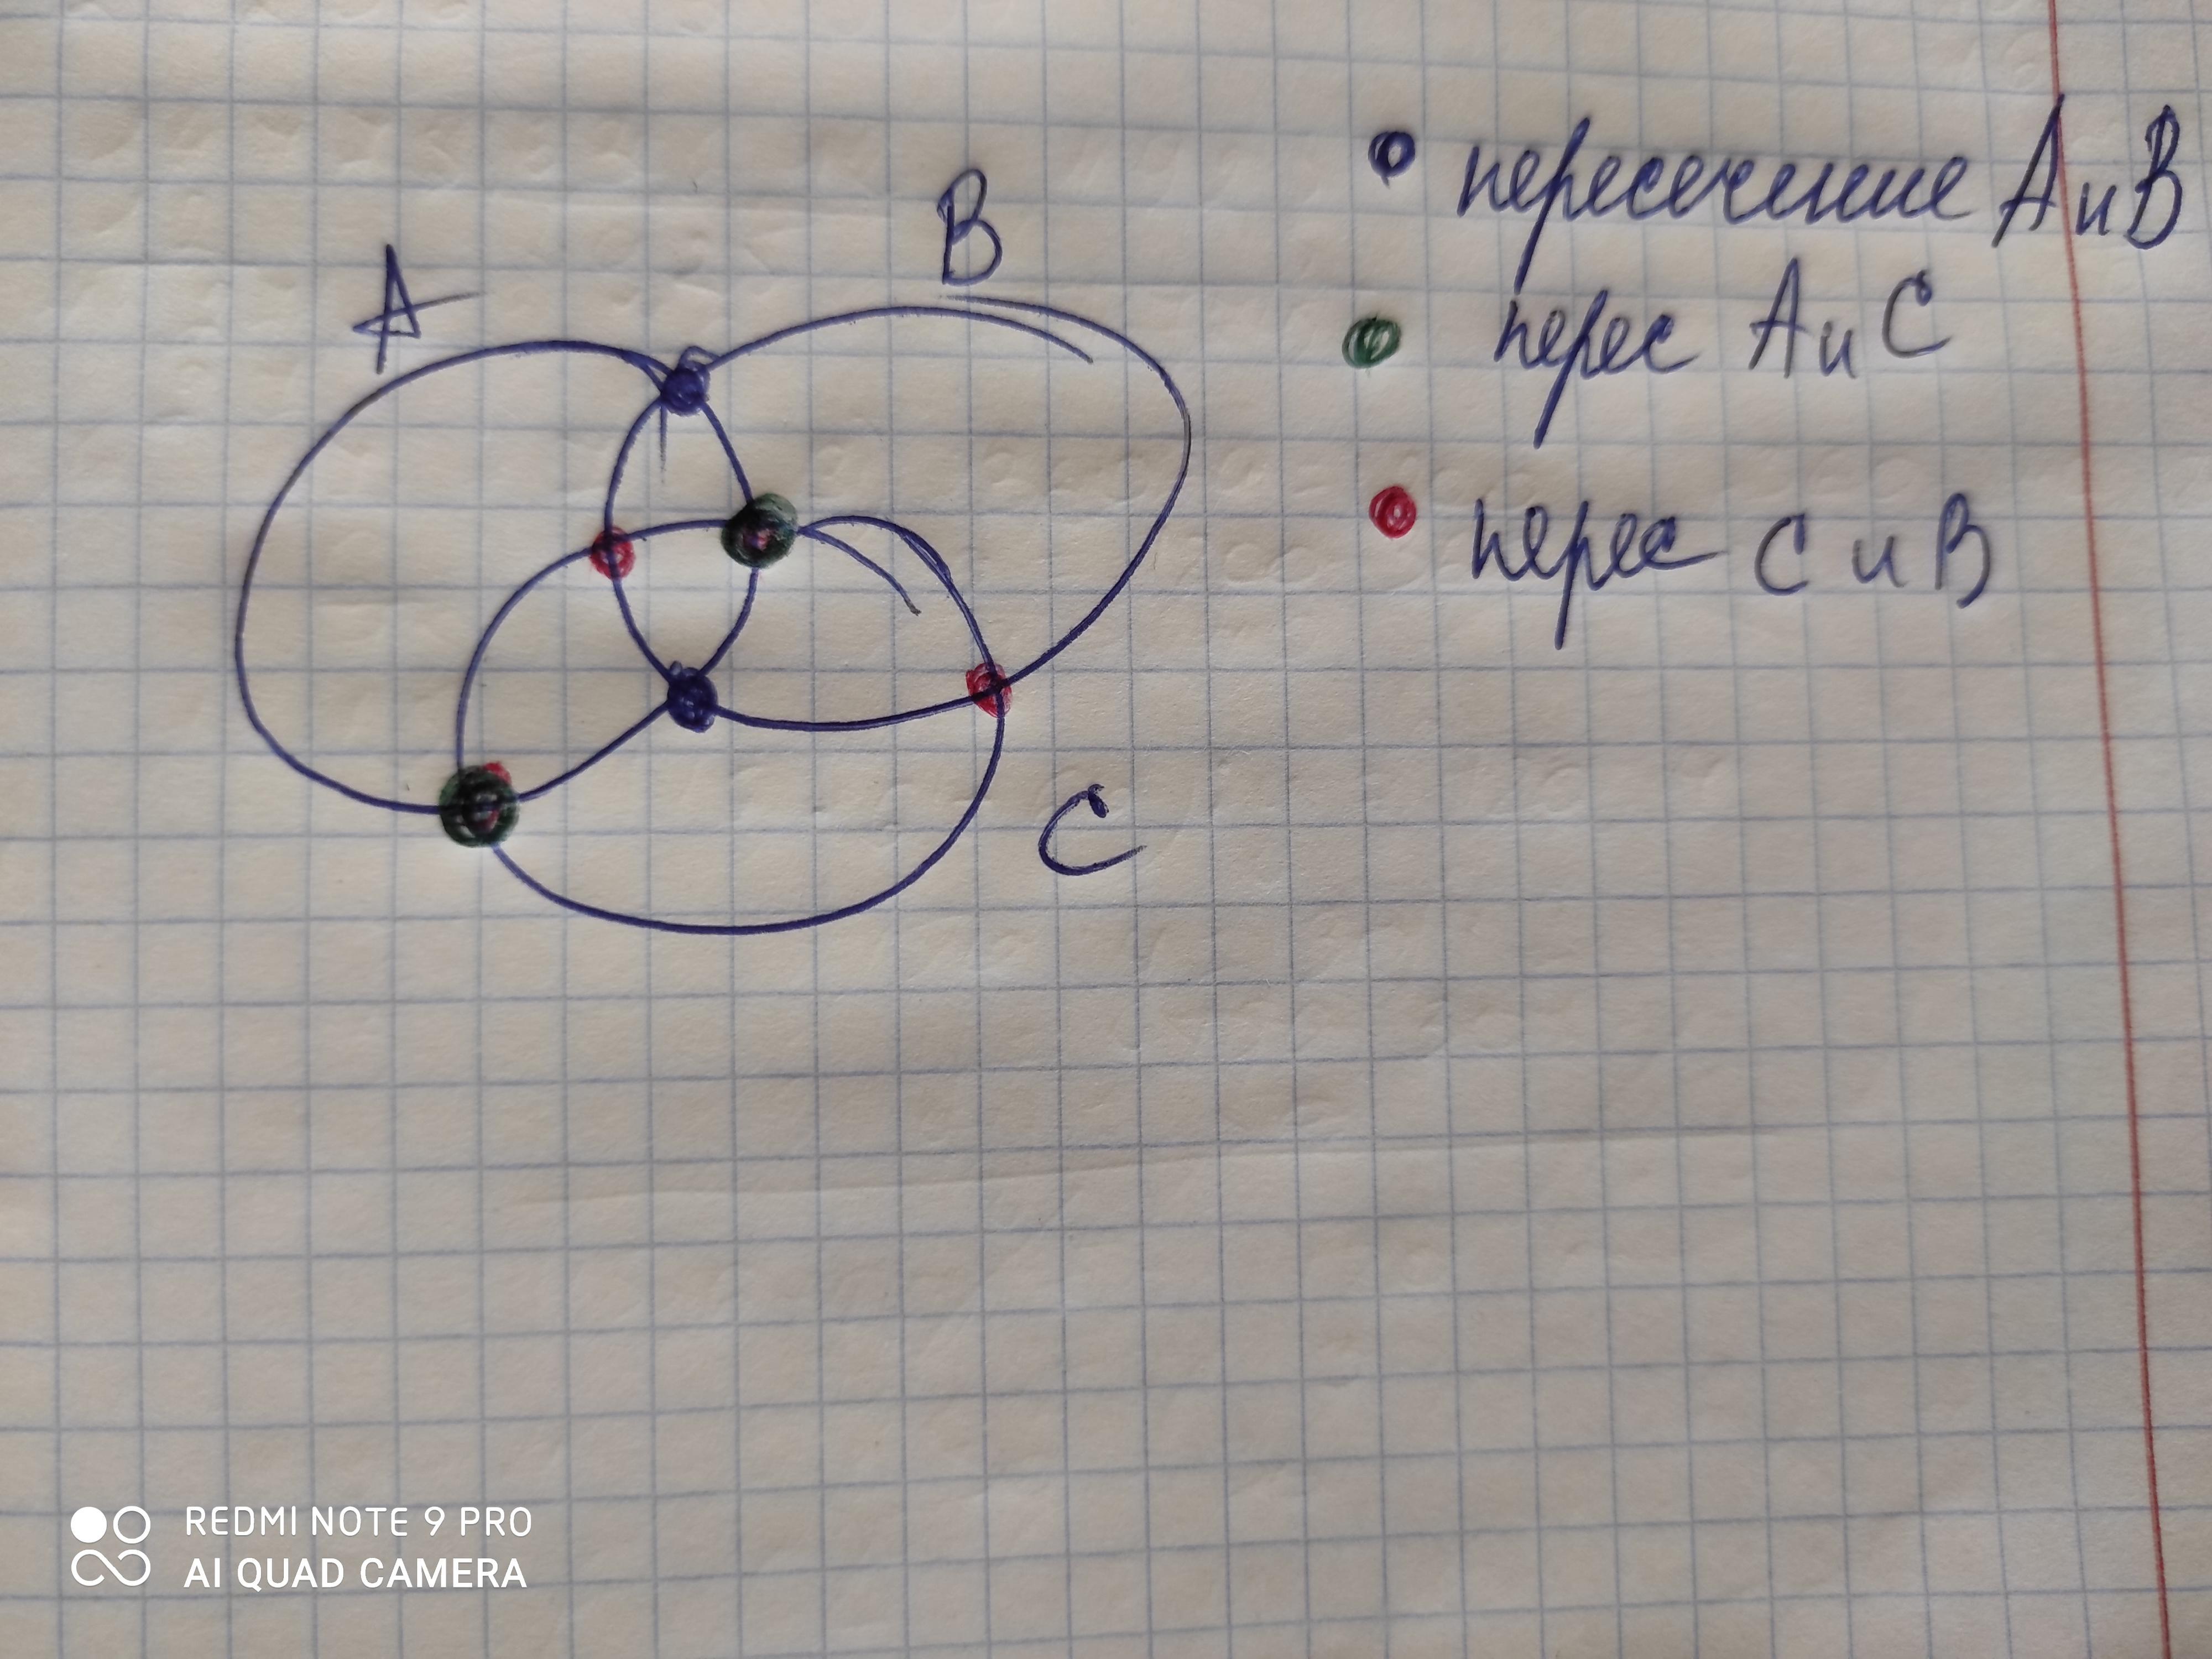 A
B
C
пересечение А и В
перес А и С
перес С и В
REDMI NOTE 9 PRO
AI QUAD CAMERA